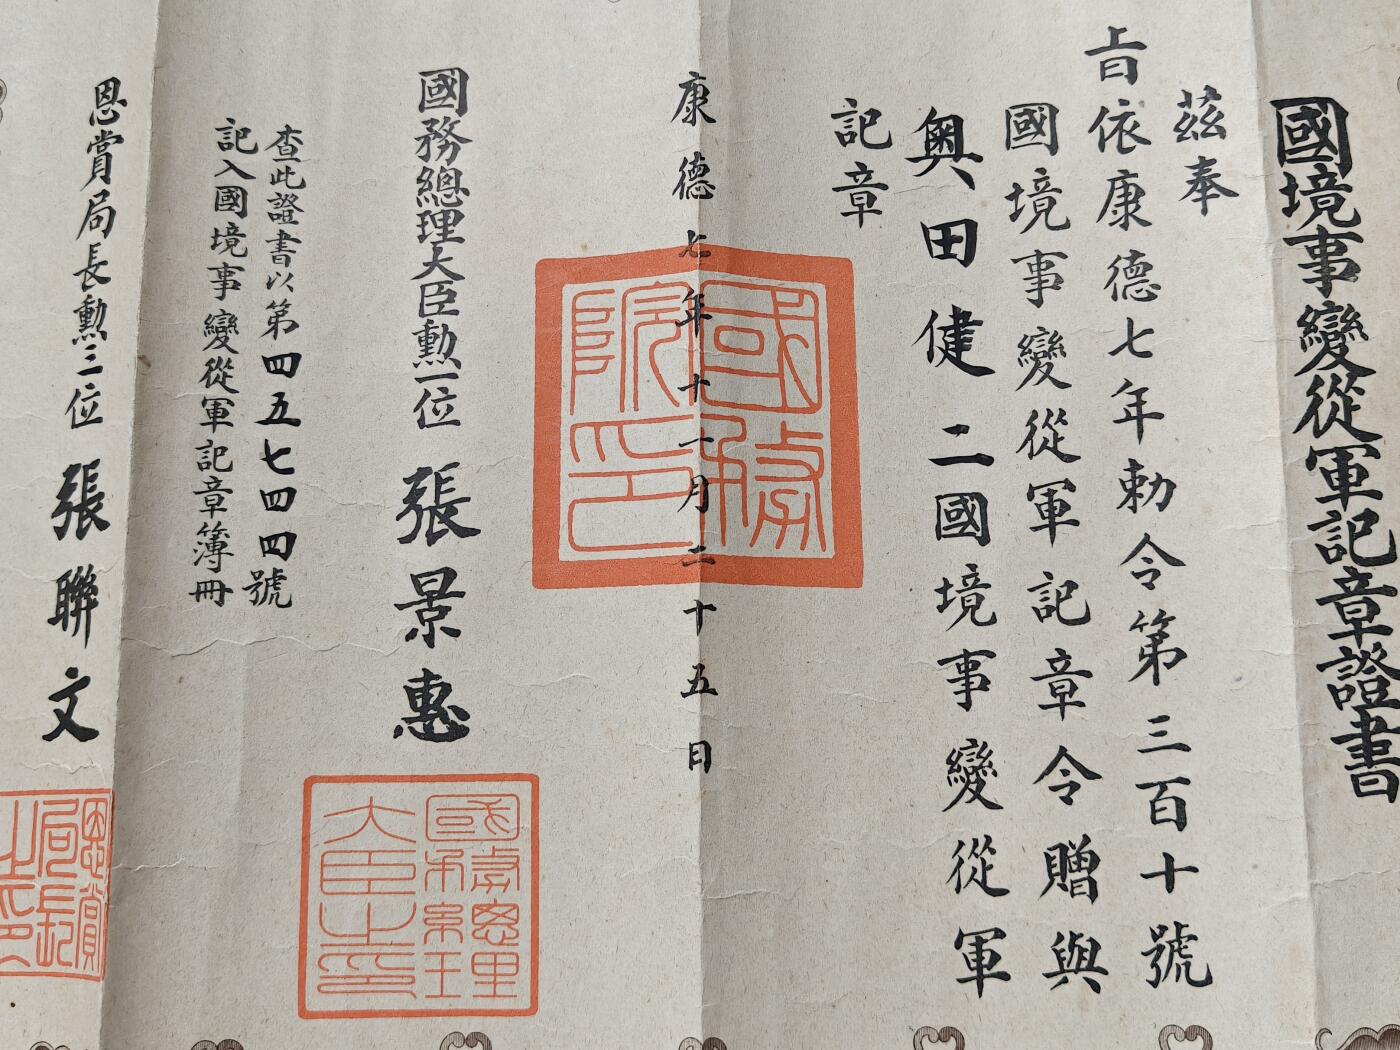 國境事變從軍記章證書
茲奉
旨依康德七年勅令第三百十號
國境事變從軍記章令贈與
奥田健二國境事變從軍
記章
康德七年十一月二十五日
國務院印
國務總理大臣勲一位 張景惠
國務總理大臣之印
查此證書以第四五七四四號
記入國境事變從軍記章簿冊
恩賞局長勲三位 張聯文
恩賞局長之印